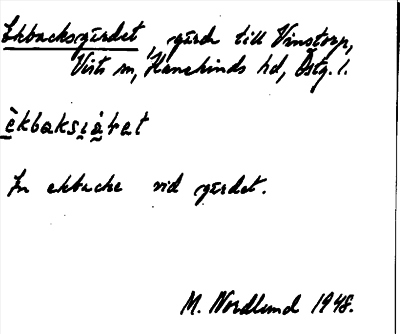 Ekbacksgärdet, gärde till Vinstorp,
Vists sn, Hanekinds hd, Östg. l.
èkbaksi̯ä̀ṛet
En ekbacke vid gärdet.
M. Nordlund 1948.